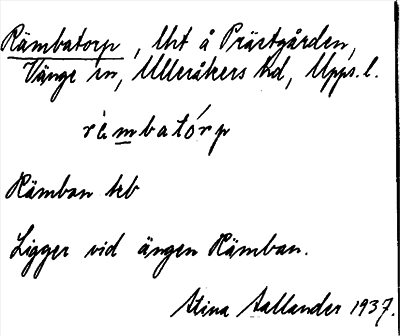 Rämbatorp, lht å Prästgården,
Vänge sn, Ulleråkers hd, Upps. l.
ràmbatórp
Rämban hrb
Ligger vid ängen Rämban.
Stina Sallander 1937.